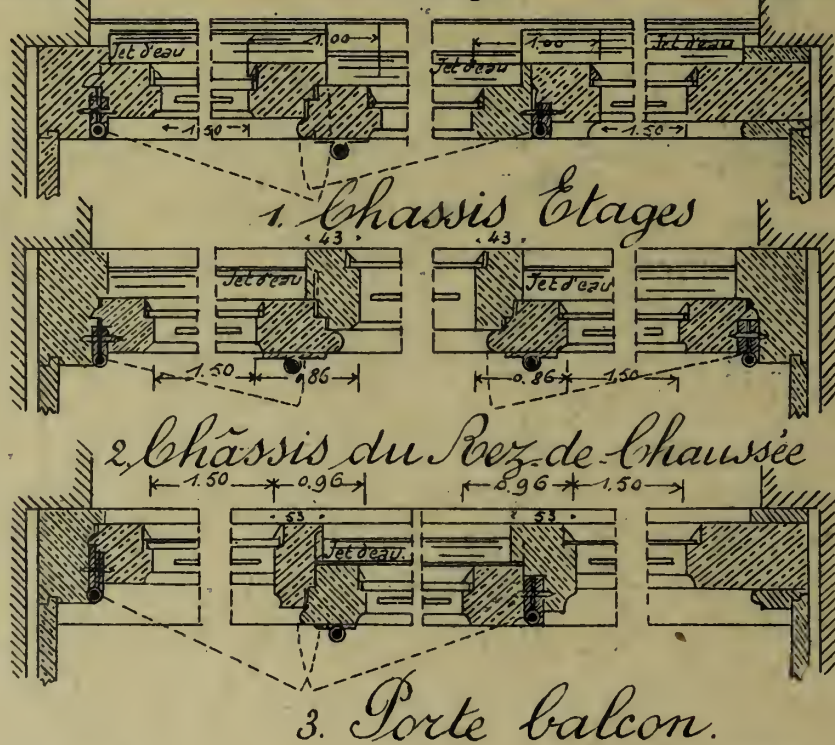 1.00 1.00
Jet d'eau Jet d'eau Jet d'eau
1.50 1.50
1. Chassis Etages
43 43
Jet d'eau Jet d'eau
1.50 .86 0.86 1.50
2, Châssis du Rez-de-Chaussée
1.50 0.96 0.96 1.50
53 53
Jet d'eau
3. Porte balcon.